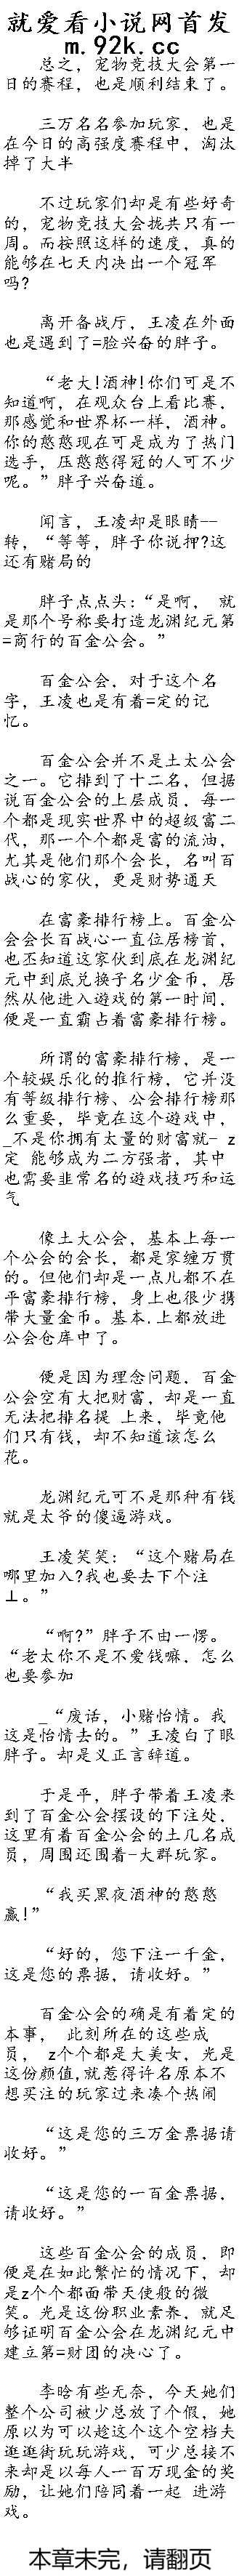 就爱看小说网首发
m.92k.cc
总之，宠物竞技大会第一
日的赛程，也是顺利结束了。
三万名名参加玩家，也是
在今日的高强度赛程中，淘汰
掉了大半
不过玩家们却是有些好奇
的，宠物竞技大会拢共只有一
周。而按照这样的速度，真的
能够在七天内决出一个冠军
吗?
离开备战厅，王凌在外面
也是遇到了=脸兴奋的胖子。
“老大!酒神!你们可是不
知道啊，在观众台上看比赛，
那感觉和世杯一样，酒神。
你的憨憨现在可是成为了热门
选手，压憨憨得冠的人可不少
呢。”胖子兴奋道。
闻言，王凌却是眼睛--
转，“等等，胖子你说押?这
还有赌局的
胖子点点头:“是啊， 就
是那个号称要打造龙渊纪元第
=商行的百金公会。”
百金公会，对于这个名
字，王凌也是有着=定的记
忆。
百金公会并不是土太公会
之一。它排到了十二名，但据
说百金公会的上层成员，每一
个都是现实世界中的超级富二
代，那一个个都是富的流油，
尤其是他们那个会长，名叫百
战心的家伙，更是财势通天
在富豪排行榜上。百金公
会会长百战心一直位居榜首，
也丕知道这家伙到底在龙渊纪
元中到底兑换子名少金币，居
然从他进入遊戏的第一时间，
便是一直霸占着富豪排行榜。
所谓的富豪排行榜，是一
个较娱乐化的推行榜，它并没
有等级排行榜、公会排行榜那
么重要，毕竟在这个遊戏中，
_不是你拥有太量的财富就- z
定 能够成为二方强者，其中
也需要韭常名的遊戏技巧和运
气
像土大公会，基本上每一
个公会的会长，都是家缠万贯
的。但他们却是一点儿都不在
乎富豪排行榜，身上也很少携
带大量金币。基本.上都放进
公会仓库中了。
便是因为理念问题，百金
公会空有大把财富，却是一直
无法把排名提 上来，毕竟他
们只有钱，却不知道该怎么
花。
龙渊纪元可不是那种有钱
就是太爷的傻逼游戏。
王凌笑笑:“这个赌局在
哪里加入?我也要去下个注
⊥。”
“啊?”胖子不由一愣。
“老太你不是不爱钱嘛，怎么
也要參加
_“废话，小赌怡情。我
这是怡情去的。”王凌白了眼
胖子。却是义正言辞道。
于是乎，胖子带着王凌来
到了百金公会摆设的下注处，
这里有着百金公会的土几名成
员，周围还围着-大群玩家。
“我买黑夜酒神的憨憨
赢!”
“好的，您下注一千金，
这是您的票据，请收好。”
百金公会的确是有着定的
本事， 此刻所在的这些成
员， z个个都是大美女，光是
这份颜值,就惹得许名原本不
想买注的玩家过来凑个热闹
“这是您的三万金票据请
收好。”
“这是您的一百金票据，
请收好。”
这些百金公会的成员，即
便是在如此繁忙的情况下，却
是z个个都面带天使般的微
笑。光是这份职业素养，就足
够证明百金公会在龙渊纪元中
建立第=财团的决心了。
李晗有些无奈，今天她们
整个公司被少总放了个假，她
原以为可以趁这个这个空档夫
逛逛街玩玩游戏，可少总接不
来却是以每人一百万现金的奖
励，让她们陪同着一起 进游
戏。
本章未完，请翻页